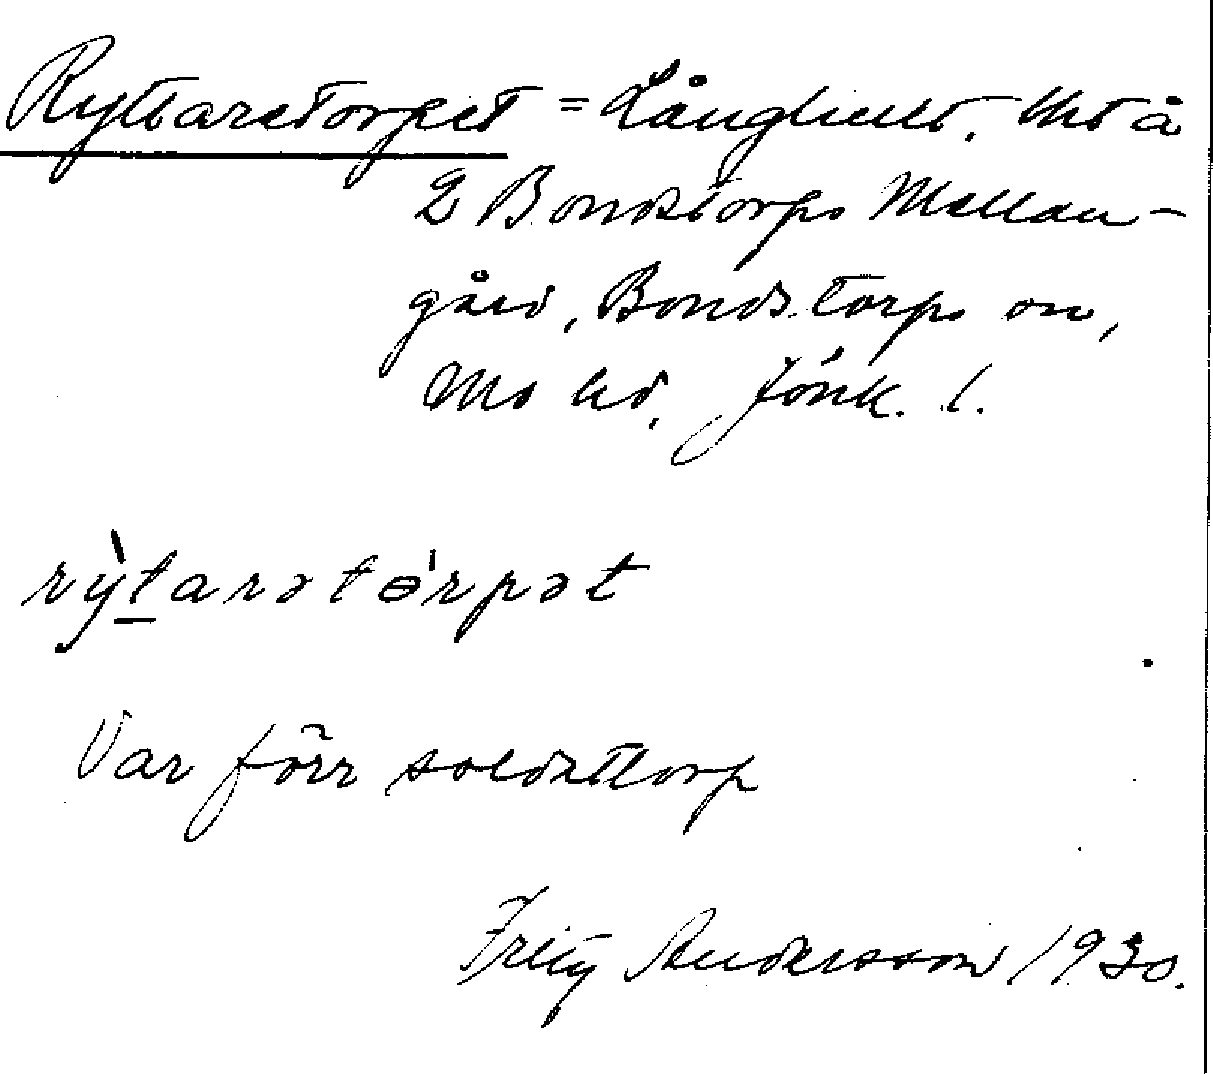 Ryttaretorpet = Långhult. Ht å
2 Bondstorps Mellan-
gård, Bondstorps sn,
Mo hd, Jönk. l.
rỳtarətɵ́rpət
Var förr soldattorp
Fritz Andersson 1930.